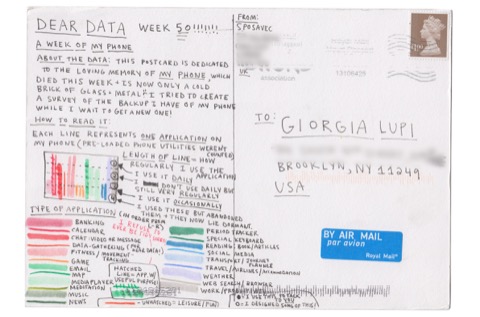 DEAR DATA WEEK 50!!!!!!!
A WEEK OF MY PHONE
ABOUT THE DATA: THIS POSTCARD IS DEDICATED
TO THE LOVING MEMORY OF MY PHONE, WHICH
DIED THIS WEEK + IS NOW ONLY A COLD
BRICK OF GLASS + METAL. I TRIED TO CREATE
A SURVEY OF THE BACKUP I HAVE OF MY PHONE
WHILE I WAIT TO GET A NEW ONE!
HOW TO READ IT:
EACH LINE REPRESENTS ONE APPLICATION ON
MY PHONE (PRE-LOADED PHONE UTILITIES WERENT
LENGTH OF LINE = HOW
REGULARLY I USE THE
APPLICATION
I USE IT DAILY
DON'T USE DAILY BUT
STILL VERY REGULARLY
I USE IT OCCASIONALLY
I USED THESE BUT ABANDONED
THEM + THEY NOW LIE DORMANT.
TYPE OF APPLICATION
BANKING
CALENDAR
CHAT-VIDEO OR MESSAGE
DATA-GATHERING
FITNESS/MOVEMENT
TRACKING
GAME
EMAIL
MAP
MEDIA PLAYER
MEDITATION
MUSIC
NEWS
HATCHED
LINE = APP W/
USEFUL PURPOSE
UNHATCHED = LEISURE/FUN
PERIOD TRACKER
SPECIAL KEYBOARD
READING/BOOKS
SOCIAL MEDIA
TRANSPORT/
PLANNER
TRAVEL/AIRLINES/
WEATHER
WEB SEARCH/BROWSE
WORK/
FROM:
S POSAVEC
UK
TO: GIORGIA LUPI
BROOKLYN, NY 11249
USA
BY AIR MAIL
par avion
Royal Mail